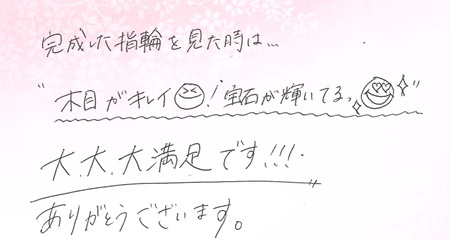 完成した指輪を見た時は…
"木目がキレイ!宝石が輝いてるっ"
大、大、大満足です!!!
ありがとうございます。